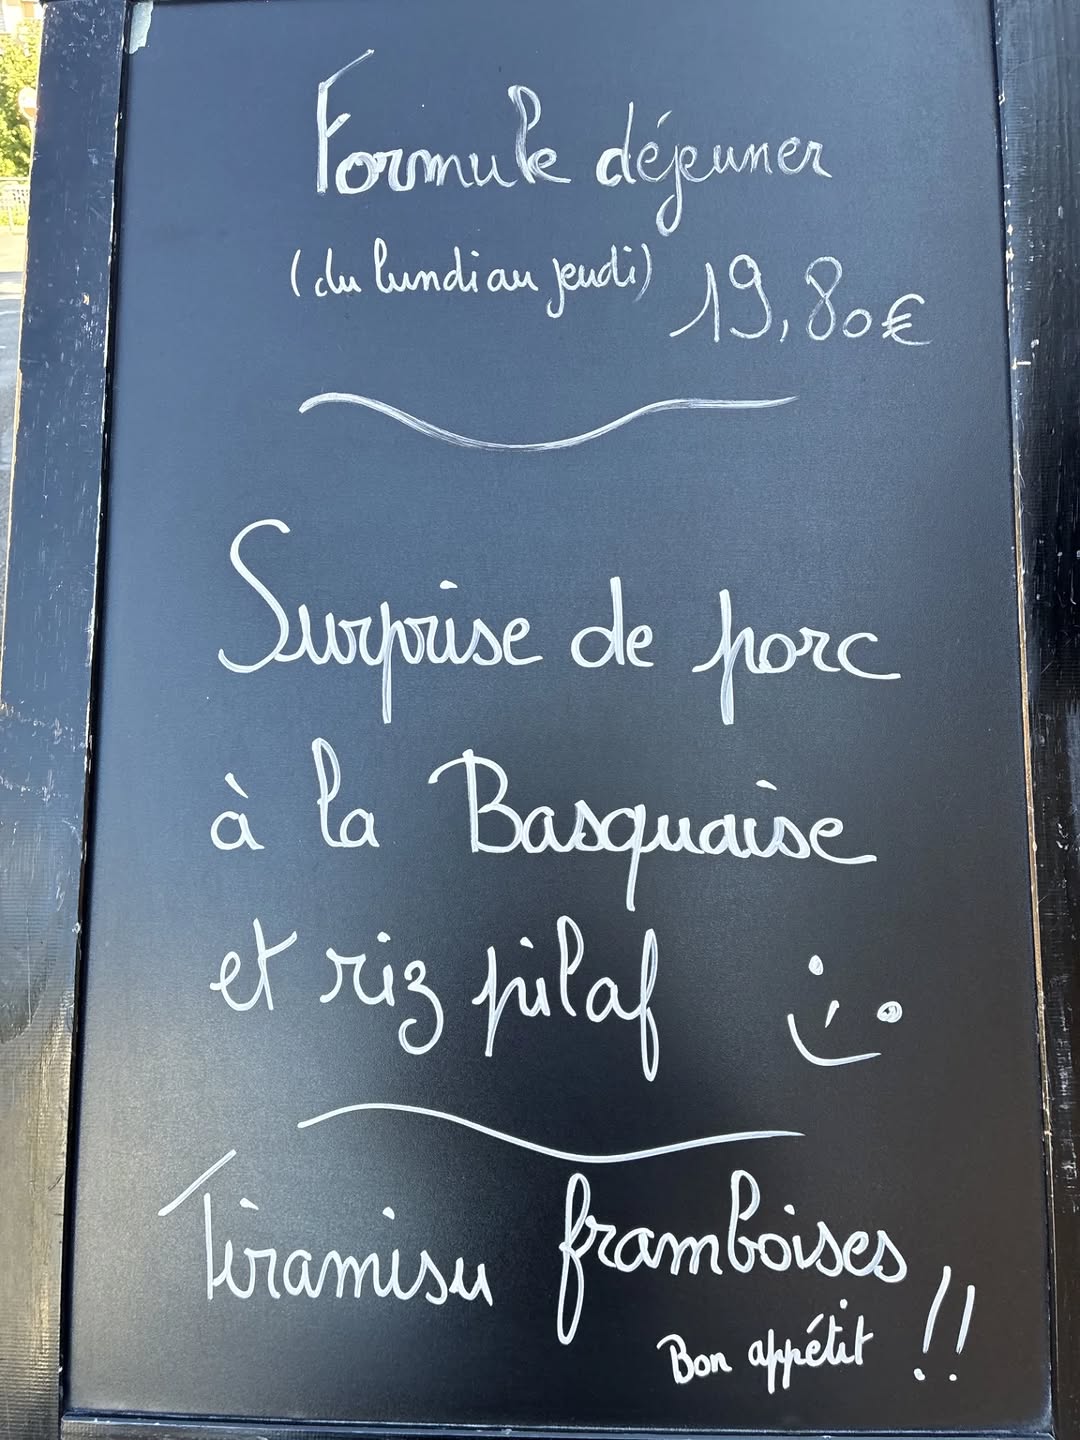 Formule déjeuner
(du lundi au jeudi) 19,80€
Surprise de porc
à la Basquaise
et riz pilaf
Tiramisu framboises !!
Bon appétit